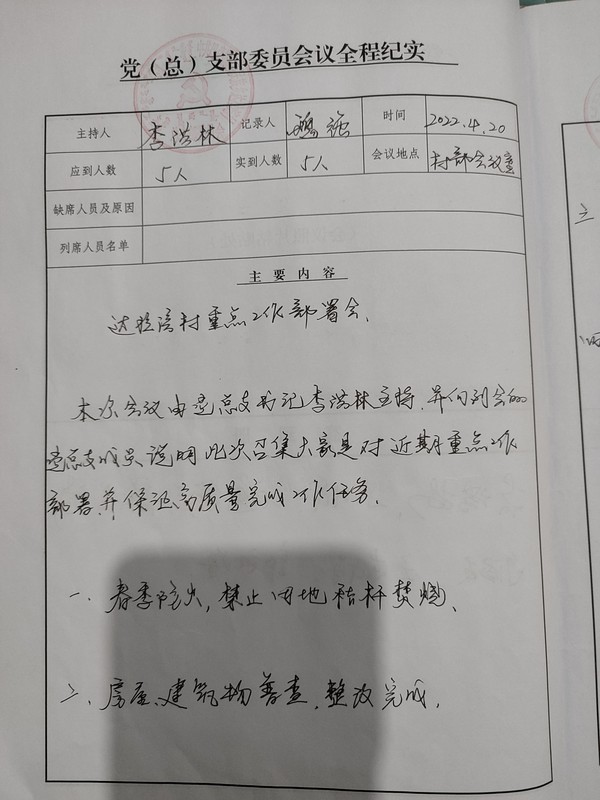 党（总）支部委员会议全程纪实
主持人 李洪林 记录人 时间 2022.4.20
应到人数 5人 实到人数 5人 会议地点 村部会议室
缺席人员及原因
列席人员名单
主要内容
达拉湾村重点工作部署会、
本次会议由党总支书记李洪林主持，并向到会的
党总支成员说明此次召集大家是对近期重点工作
部署并保证高质量完成工作任务．
一、春季防火，禁止田地秸秆焚烧、
二、房屋、建筑物普查，整改完成．